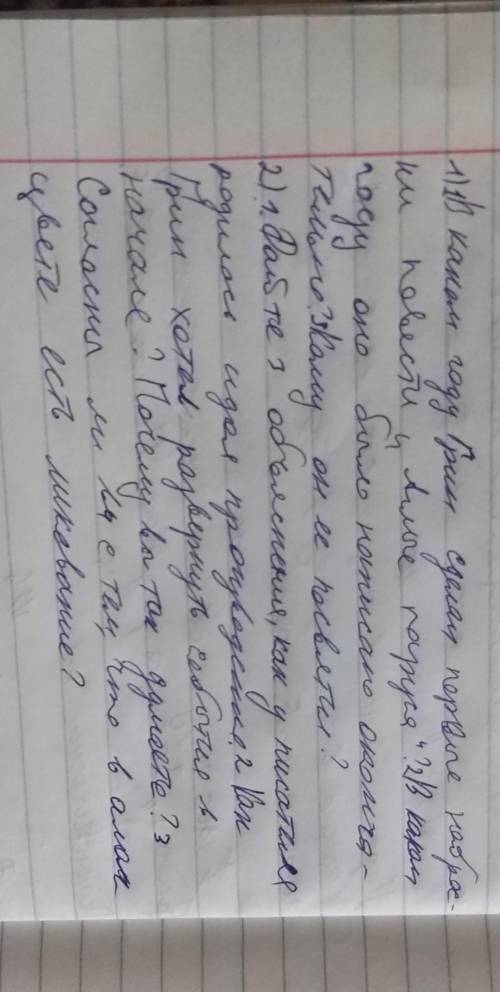 1) 1) В каком году Грин сделал первые наброс-
ки повести „Алые паруса"? 2) В каком
году оно было написано оконча-
тельно? 3) Кому он ее посвятил?
2) 1. Дайте з объяснения, как у писателя
родилась идея произведения. 2 Как
Грин хотел развернуть события в
начале? Почему вы так думаете? 3
Согласны ли вы с тем, что в алом
цвете есть ликование?